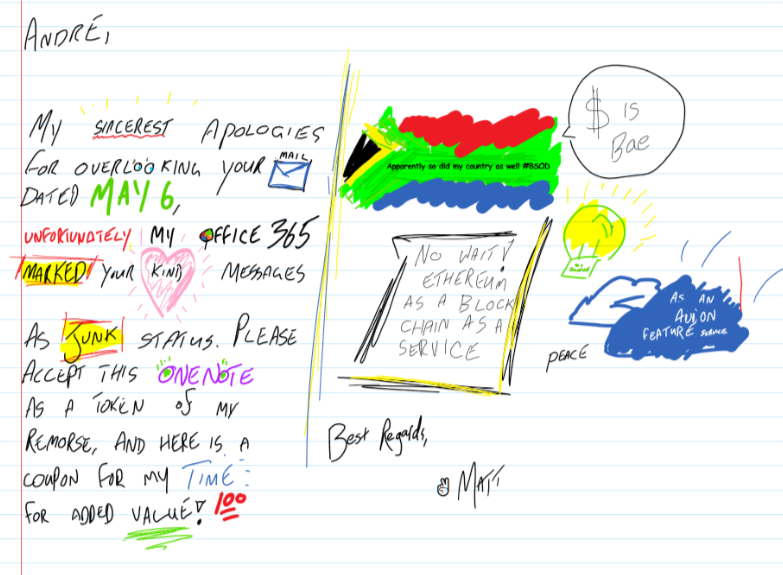 ANDRÉ,
MY SINCEREST APOLOGIES
FOR OVERLOOKING YOUR MAIL
DATED MAY 6,
UNFORTUNATELY MY OFFICE 365
MARKED YOUR KIND MESSAGES
AS JUNK STATUS. PLEASE
ACCEPT THIS ONENOTE
AS A TOKEN OF MY
REMORSE, AND HERE IS A
COUPON FOR MY TIME
FOR ADDED VALUE! 100
Apparently so did my country as well #BSOD
$ IS
Bae
NO WAIT!
ETHEREUM
AS A BLOCK
CHAIN AS A
SERVICE
AS AN
FEATURE SERVICE
PEACE
Best Regards,
✌ MATT